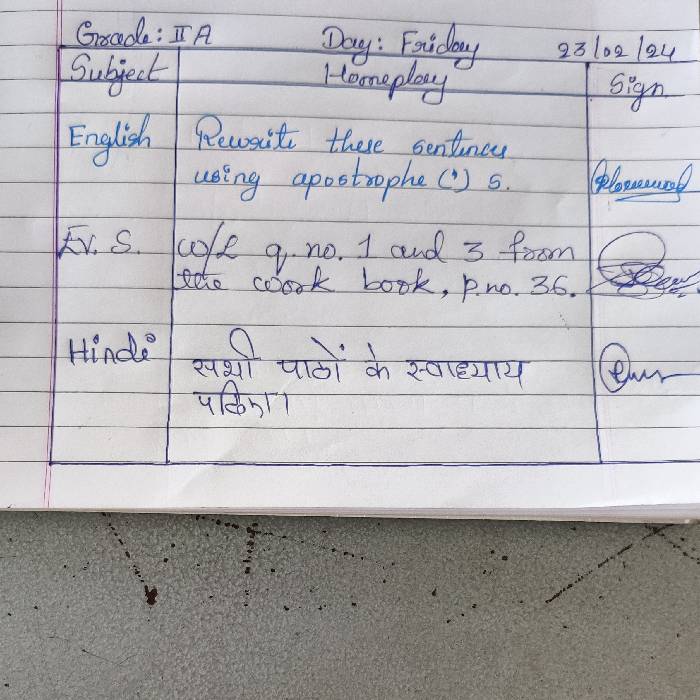 Grade: II A Day: Friday 23/02/24
Subject Homeplay Sign
English Rewrite these sentences
using apostrophe (') s.
Ev. S. w/L q. no. 1 and 3 from
the work book, p.no. 36.
Hindi सभी पाठों के स्वाध्याय
पढिए।